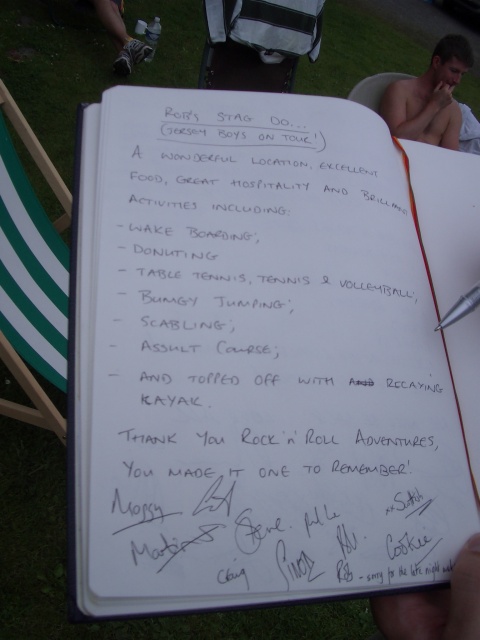 ROB'S STAG DO...
(JERSEY BOYS ON TOUR!)
A WONDERFUL LOCATION, EXCELLENT
FOOD, GREAT HOSPITALITY AND BRILLIANT
ACTIVITIES INCLUDING:
- WAKE BOARDING;
- DONUTING
- TABLE TENNIS, TENNIS & VOLLEYBALL;
- BUNGY JUMPING;
- SCABLING;
- ASSULT COURSE;
- AND TOPPED OFF WITH RELAXING
KAYAK.
THANK YOU ROCK 'N' ROLL ADVENTURES,
YOU MADE IT ONE TO REMEMBER!
Moggy
Steve.
xx Satch
Martin
Craig
Simon
Rob.
Cookie
Rob - sorry for the late night